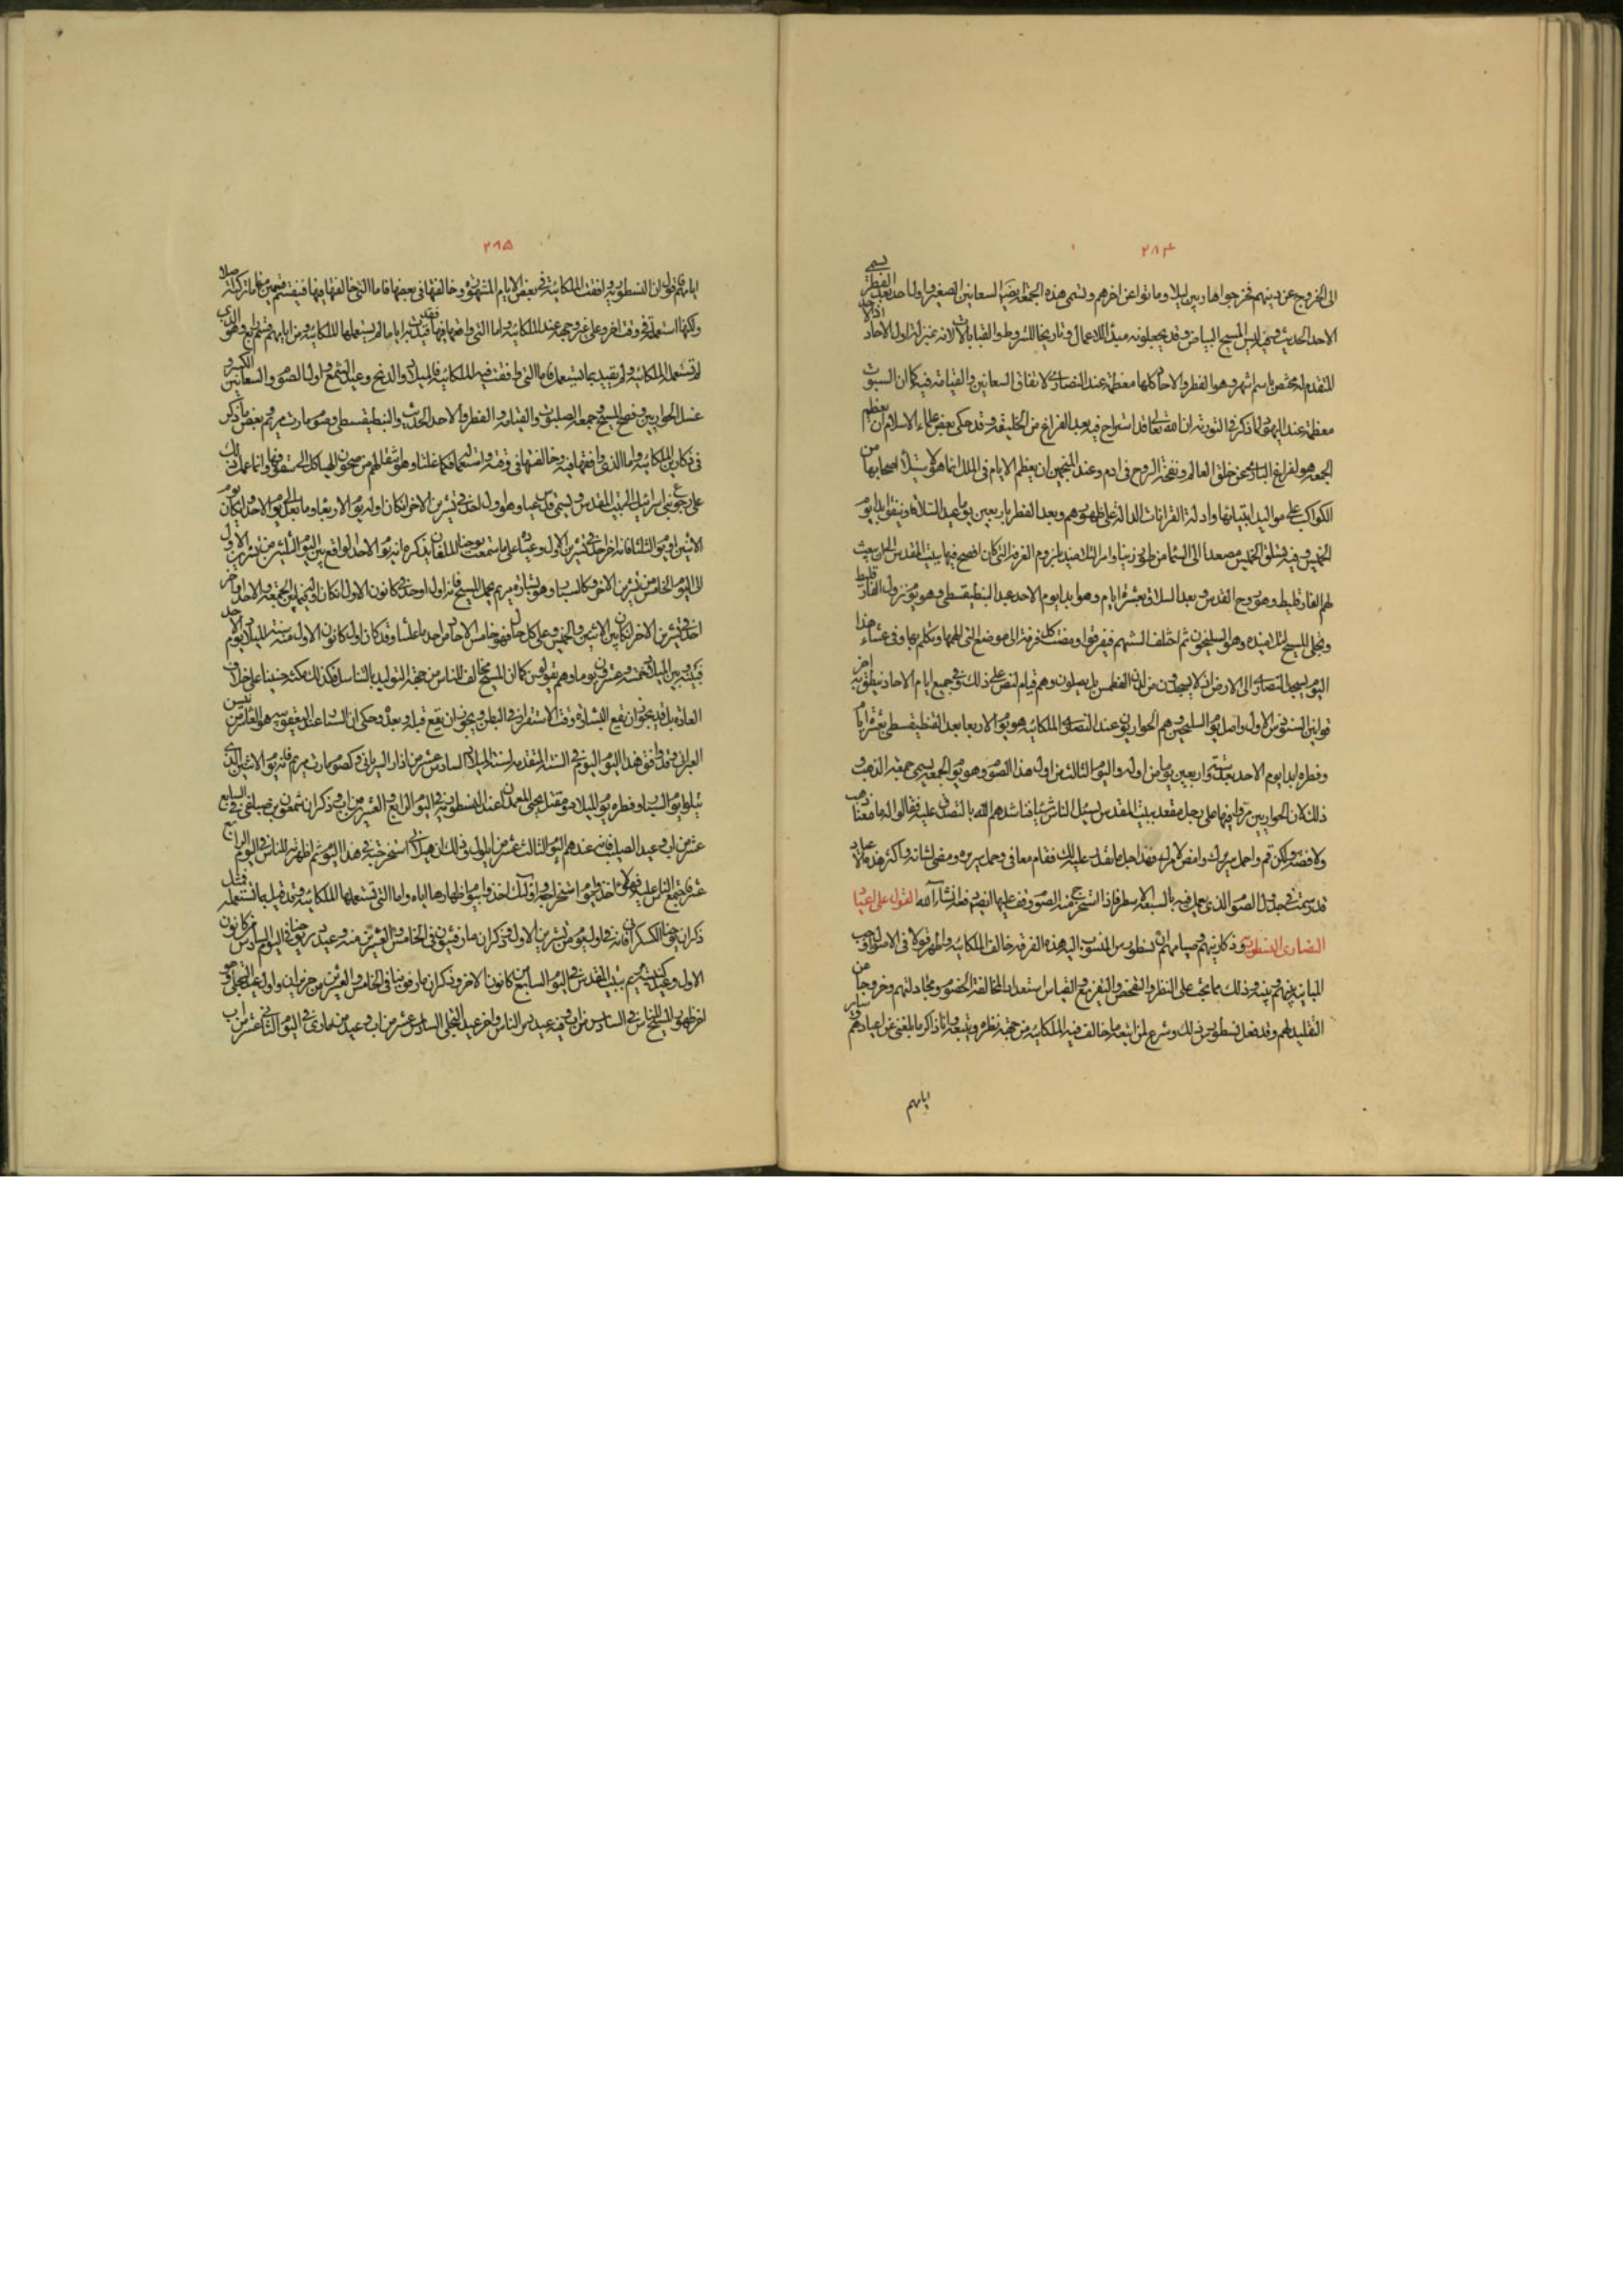 ٢٨٤
الى الخروج عن دينهم فخرجوا هاربين ليلا وماتوا عن اخرهم وتسمى هذه الجمعة ايضا السعانين الصغيرة واول احد بعد الفطر يسمى
الاحد الحديث وفيه لبس المسيح البياض وقد يجعلونه مبدأ للاعمال وتاريخا للشروط والقبالات لانه بمنزلة اول الاحاد اذ الاحد
المتقدم له مختص باسم اشهر وهو الفطر والاحاد كلها معظمة عند النصارى لاتفاق السعانين والقيامة فيه كما ان السبوت
معظمة عند اليهود لما ذكر فى التورية ان الله تعالى قد استراح فيه بعد الفراغ من الخليقة وقد حكى بعض علماء الاسلام ان تعظيم
الجمعة هو لفراغ البارئ عن خلق العالم ونفخه الروح فى ادم وعند المنجمين ان تعظيم الايام فى الملل انما هو لاستيلاء اصحابها من
الكواكب على مواليد انبيائها وادلة القرانات الدالة على ظهورهم وبعد الفطر باربعين يوما عيد السلاقا ويتفق ابدا يوم
الخميس وفيه تسلق المسيح مصعدا الى السماء من طور زيتا وامر التلاميذ بلزوم الغرفة التى كان افصح فيها ببيت المقدس الى ان يبعث
لهم الفارقليط وهو روح القدس وبعد السلاقا بعشرة ايام وهو ابدا يوم الاحد عيد البنطيقسطى وهو يوم نزول الفارقليط
وتجلى المسيح لتلاميذه وهم السليحون ثم اختلفت السنتهم فتفرقوا ومضت كل فرقة الى موضع التى الهمها وتكلم بها وفى عشاء هذا
اليوم يسجد النصارى الى الارض اذ لا يسجدون من لدن الفطر بل يصلون وهم قيام لنص على ذلك وفى جميع ايام الاحاد نطق به اخر
قوانين السنودس الاول واصل صوم السليحين وهم الحواريون عند النصارى الملكائية هو يوم الاربعاء بعد البنطيقسطى بعشرة ايام
وفطره ابدا يوم الاحد بعد ستة واربعين يوما من اوله واليوم الثالث من اول هذا الصوم وهو يوم الجمعة يسمى جمعة الذهب و
ذلك لان الحواريين مروا فيها على رجل مقعد ببيت المقدس يسئل الناس شيئا فناشدهم الله بالتصدق عليه فقالوا له ما معنا ذهب
ولا فضة ولكن قم واحمل سريرك وامض الى منزلك فهذا اجل ما نقدر عليه لك فقام معافى وحمل سريره ومضى لشانه واكثر هذه الاعياد
قد رسمت فى جدول الصوم الذى عمل فيه بالسبعة الاسطر فاذا استخرج منه الصوم وقف عليها ايضا معه ان شاء الله القول على اعياد
النصارى النسطورية وذكارينهم وصيامهم ان نسطورس المنسوب اليه هذه الفرقة خالف الملكائية واظهر قولا فى الاصول اوجب
المباينة بينهم وبينه وذلك بما بحث على النظر والتفحص والتفريع والقياس استعدادا لمخالفة الخصوم ومجادلتهم وخروجا من
التقليد لهم وقد فعل نسطورس ذلك وشرع لمن اتبعه ما خالف فيه الملكائية من جهة نظره وتتبعه وانا ذاكر ما بلغنى عن اعيادهم وسائر
ايامهم
٢٨٥
ايامهم فاقول ان النسطورية وافقت الملكائية فى بعض الايام المشهورة وخالفتها فى بعضها فاما التى خالفتها فيها فينقسم قسمين منها ما تركته اصلا
ولكنها استعملته فى وقت اخر وعلى غير وجهه عند الملكائية واما التى وافقتها فيها
لم تستعمله الملكائية ولم يتقيد بما تستعمله فاما التى وافقت فيه الملكائية فالميلاد والدنح وعيد الشمع واول الصوم والسعانين الكبير و
غسل الحواريين وفصح المسيح وجمعة الصلبوت والقيامة والفطر والاحد الحديث والبنطيقسطى وصوم مارت مريم وبعض ما ذكر
فى ذكارين الملكائية واما الذى وافقتها فيه وخالفتها فى وقته واستعماله فكما علثا وهو انتقالهم من صحون الهياكل الى سقوفها وانما عمل ذلك
على رجوع بنى اسرائيل الى بيت المقدس ويسمى قدس عيتا وهو اول احد فى تشرين الاخر ان كان اوله يوم الاربعاء وما بعده الى يوم الاحد وان كان يوم
الاثنين او يوم الثلثا فانه اخر احد فى تشرين الاول وعيد على ما سمعت يوحنا المعلم يذكر انه يوم الاحد الواقع بين اليوم الثلثين من تشرين الاول
الى اليوم الخامس من تشرين الاخر وكالسبار وهو بشارة مريم بحمل المسيح فانه اول احد فى كانون الاول ان كان اوله فيما بين الجمعة والاحد واخر
احد فى تشرين الاخر ان كان بين الاثنين والخميس وعلى كل حال فهو خامس الاحاد من احد ما علثا وقد كان اول كانون الاول من سنة الميلاد يوم الاحد
فبينه وبين الميلاد خمسة وعشرون يوما وهم يقولون كما ان المسيح مخالف للناس من جهة التوليد بالتناسل فكذلك مكثه جنينا على خلاف
العادة بل قد يجوز ان تقع البشارة وقت الاستقرار فى البطن ويجوز ان تقع قبله وبعده وحكى ان السبار عند اليعقوبية هو العاشر من نيسن
العبرانى وقد وافق هذا اليوم اليوم فى السنة المتقدمة لسنة الميلاد السادس عشر من اذار السريانى وكصوم مارت مريم فانه يوم الاثنين الذى
يتلو يوم السبار وفطره يوم الميلاد ومقتل يحيى المعمدان عند النسطورية فى اليوم الرابع والعشرين من اب وذكران شمعون بن صباعى فى السابع
عشر من اب وعيد الصليب فانه عندهم اليوم الثالث عشر من ايلول وذلك ان هيلانى استخرجته فى هذا اليوم ثم اظهرته للناس فى اليوم الرابع
عشر فاجتمع الناس عليه فهؤلاء اخذوا بيوم استخراجه واولئك اخذوا بيوم اظهارها اياه واما التى تستعملها الملكائية وقد قيل بما تستعمله فمثل
ذكران يوحنا الكسكرانى فانه فى اول يوم من تشرين الاول وذكران مار فيثون فى الخامس والعشرين منه وعيد دير يوحنا فى اليوم السادس من كانون
الاول وعيد كنيسة مريم ببيت المقدس فى اليوم السابع من كانون الاخر وذكران مار توما فى الخامس والعشرين من حزيران واول عيد التجلى وهو
اخر ظهور المسيح للناس فى السادس من اب وفيه عيد دير الناس واخر عيد التجلى السادس عشر من اب وعيد مار مارى فى اليوم الثانى عشر من اب